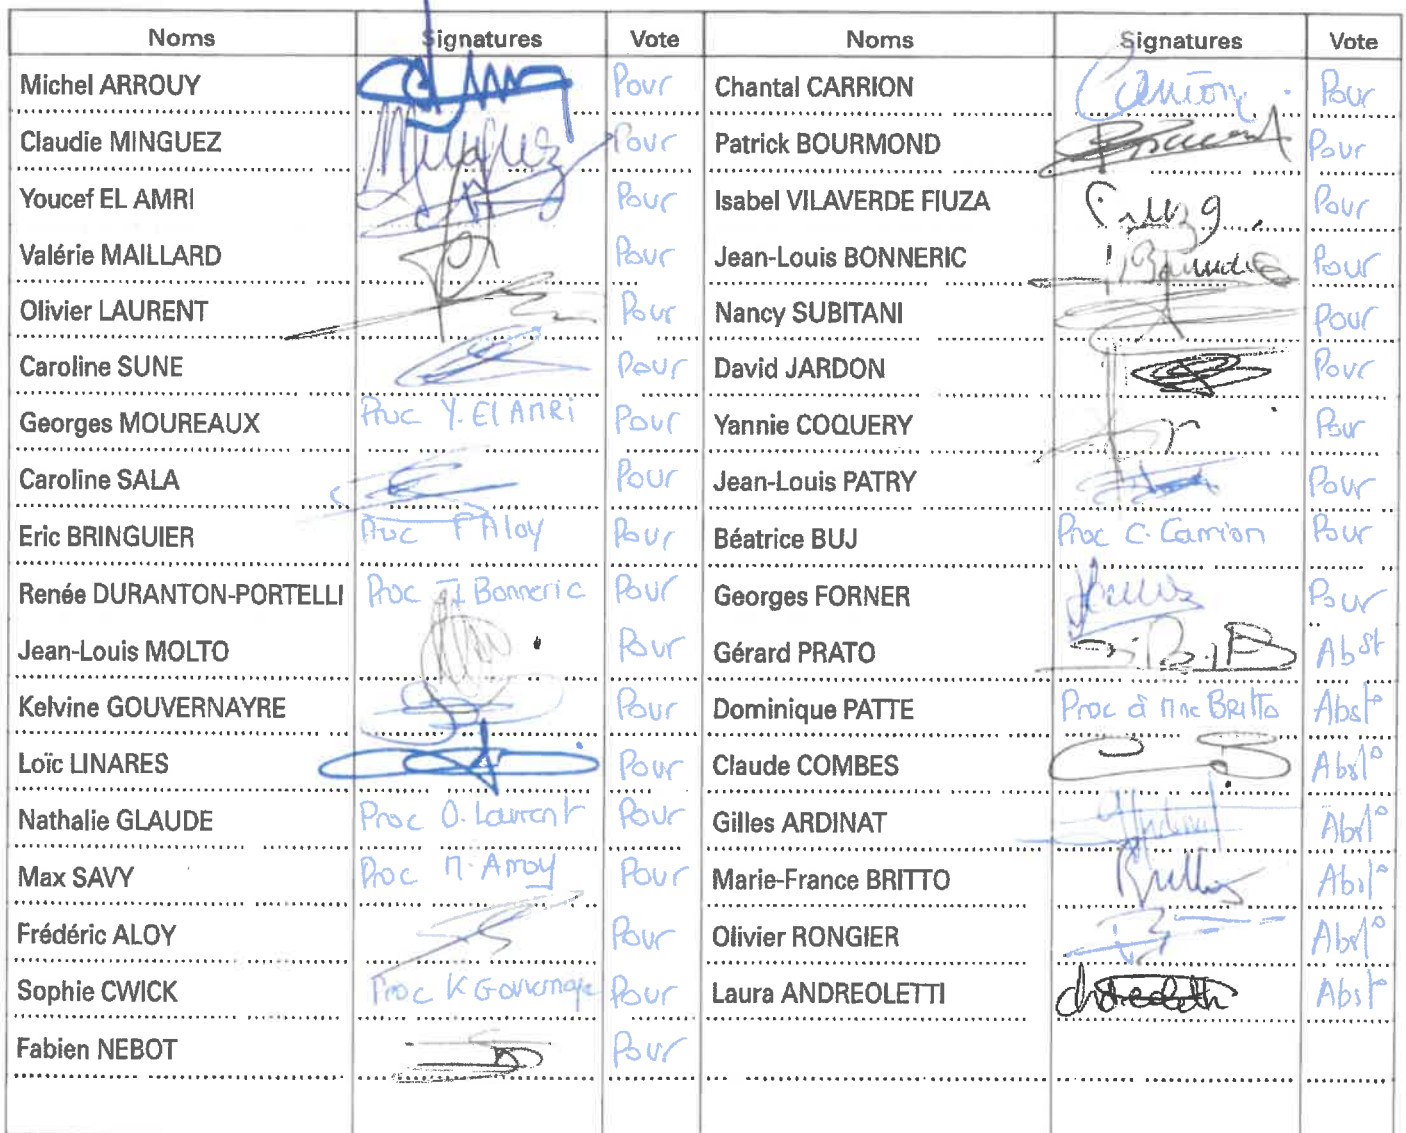 Noms Signatures Vote Noms Signatures Vote
Michel ARROUY Pour Chantal CARRION Carrion Pour
Claudie MINGUEZ Minguez Pour Patrick BOURMOND Pour
Youcef EL AMRI Pour Isabel VILAVERDE FIUZA Pour
Valérie MAILLARD Pour Jean-Louis BONNERIC Pour
Olivier LAURENT Pour Nancy SUBITANI Pour
Caroline SUNE Pour David JARDON Pour
Georges MOUREAUX Proc Y. El AMRI Pour Yannie COQUERY Pour
Caroline SALA Pour Jean-Louis PATRY Pour
Eric BRINGUIER Proc F Aloy Pour Béatrice BUJ Proc C. Carrion Pour
Renée DURANTON-PORTELLI Proc J Bonneric Pour Georges FORNER Pour
Jean-Louis MOLTO Pour Gérard PRATO Abst
Kelvine GOUVERNAYRE Pour Dominique PATTE Proc à Mme BRITTO Abst°
Loïc LINARES Pour Claude COMBES Abst°
Nathalie GLAUDE Proc O. Laurent Pour Gilles ARDINAT Abst°
Max SAVY Proc M. Arroy Pour Marie-France BRITTO Britto Abst°
Frédéric ALOY Pour Olivier RONGIER Abst°
Sophie CWICK Proc K Gouvernayre Pour Laura ANDREOLETTI Abst°
Fabien NEBOT Pour